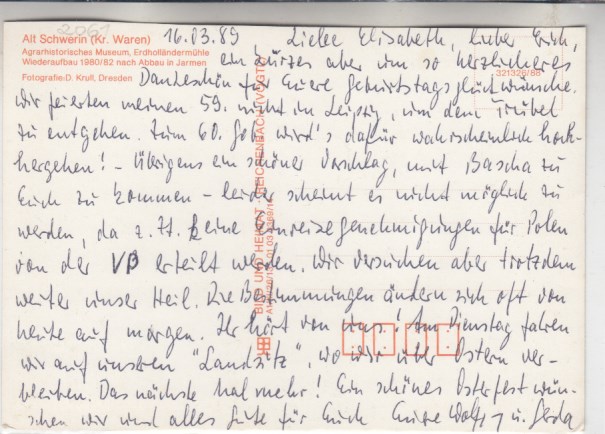 Alt Schwerin (Kr. Waren)
Agrarhistorisches Museum, Erdholländermühle
Wiederaufbau 1980/82 nach Abbau in Jarmen
Fotografie: D. Krull, Dresden
321326/88
BILD UND HEIMAT REICHENBACH (VOGTL)
16.03.89 Liebe Elisabeth, lieber Erich,
ein kurzes aber um so herzlicheres
Dankeschön für Eure Geburtstagsglückwünsche.
Wir feierten meinen 59. nicht in Leipzig, um dem Trubel
zu entgehen. Zum 60. Geb. wird's dafür wahrscheinlich hoch-
hergehen! – Übrigens ein schöner Vorschlag, mit Bascha zu
Euch zu kommen – leider scheint es nicht möglich zu
werden, da z. Zt. keine Einreisegenehmigungen für Polen
von der VP erteilt werden. Wir versuchen aber trotzdem
weiter unser Heil. Die Bestimmungen ändern sich oft von
heute auf morgen. Ihr hört von uns! Am Dienstag fahren
wir auf unseren "Landsitz", wo wir über Ostern ver-
bleiben. Das nächste Mal mehr! Ein schönes Osterfest wün-
schen wir und alles Gute für Euch Eure Wolfg. u. Gerda